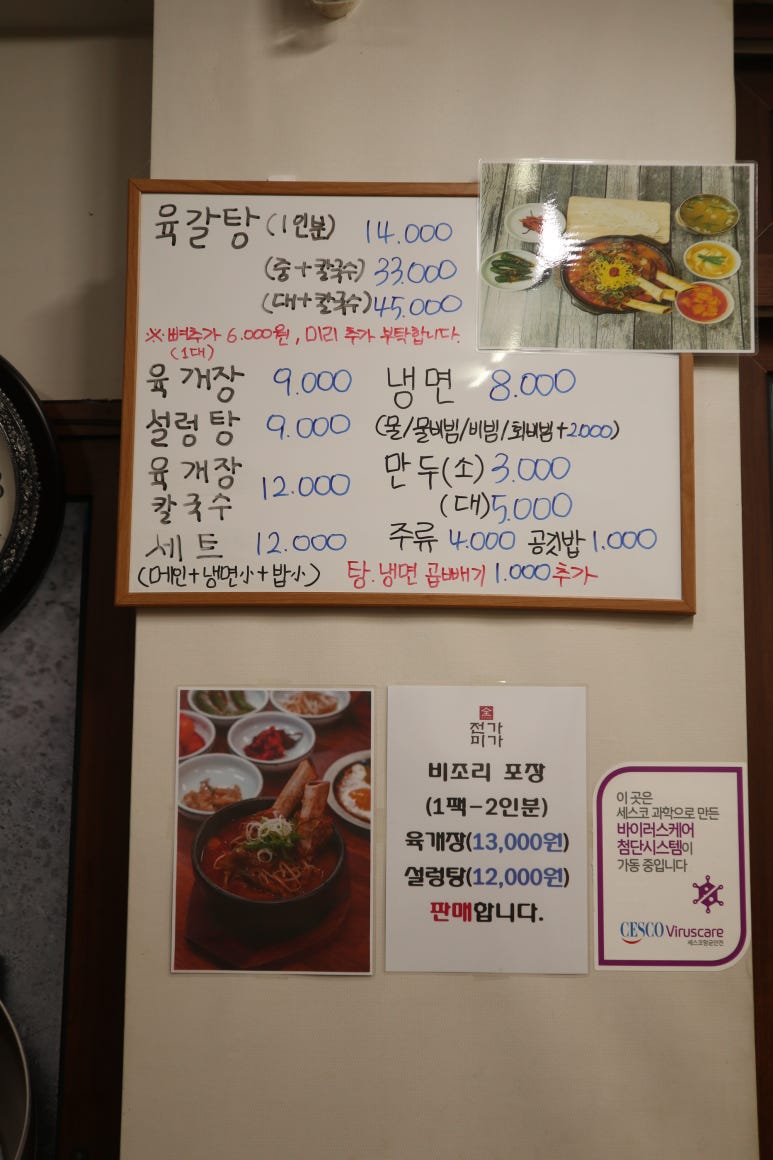 육갈탕 (1인분) 14.000
(중+칼국수) 33.000
(대+칼국수) 45.000
※ 뼈추가 6.000원, 미리 추가 부탁합니다.
(1대)
육개장 9.000
설렁탕 9.000
육개장
칼국수 12.000
세트 12.000
(메인+냉면小+밥小)
냉면 8.000
(물/물비빔/비빔/회비빔+2.000)
만두(소) 3.000
(대) 5.000
주류 4.000 공깃밥 1.000
탕.냉면 곱빼기 1.000 추가
전가
미가
비조리 포장
(1팩-2인분)
육개장(13,000원)
설렁탕(12,000원)
판매합니다.
이 곳은
세스코 과학으로 만든
바이러스케어
첨단시스템이
가동 중입니다
CESCO Viruscare
세스코항균안전